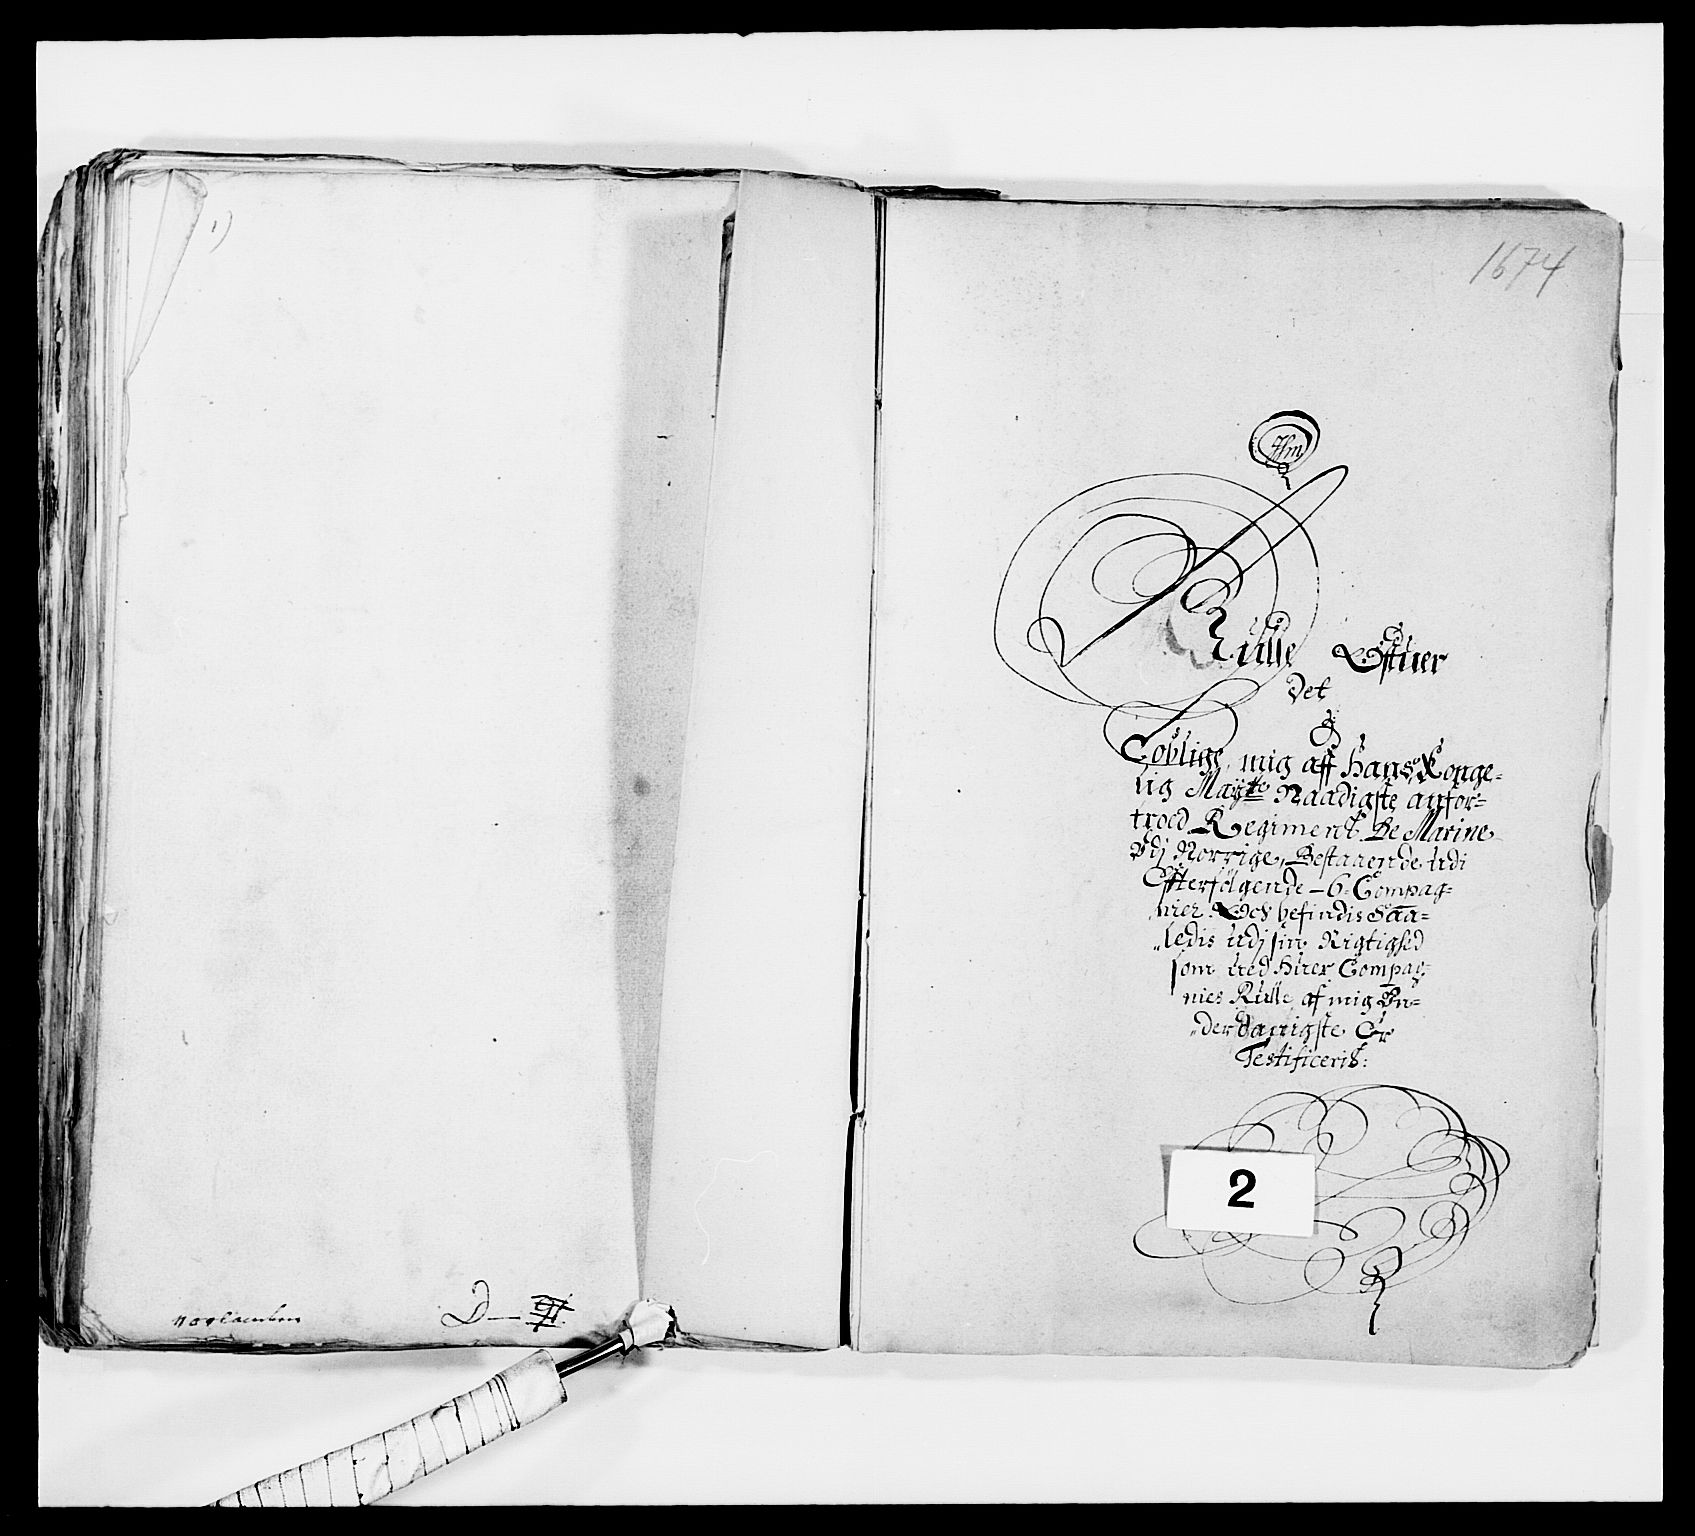 1)
D—
1674
Rulle Offuer
det
Loblige, mig aff Hans Konge-
lig Maytts Naadigste anfor-
troed Regiment De Marine
Udj Norrige, Bestaaende Udi
Effterfølgende – 6 – Compag-
nier. Och befindis Saa-
„ledis Udj sin Rigtighed
som ued huer Compag-
nies Rulle af mig Un-
„derdanigste Er
Testificerit:
2